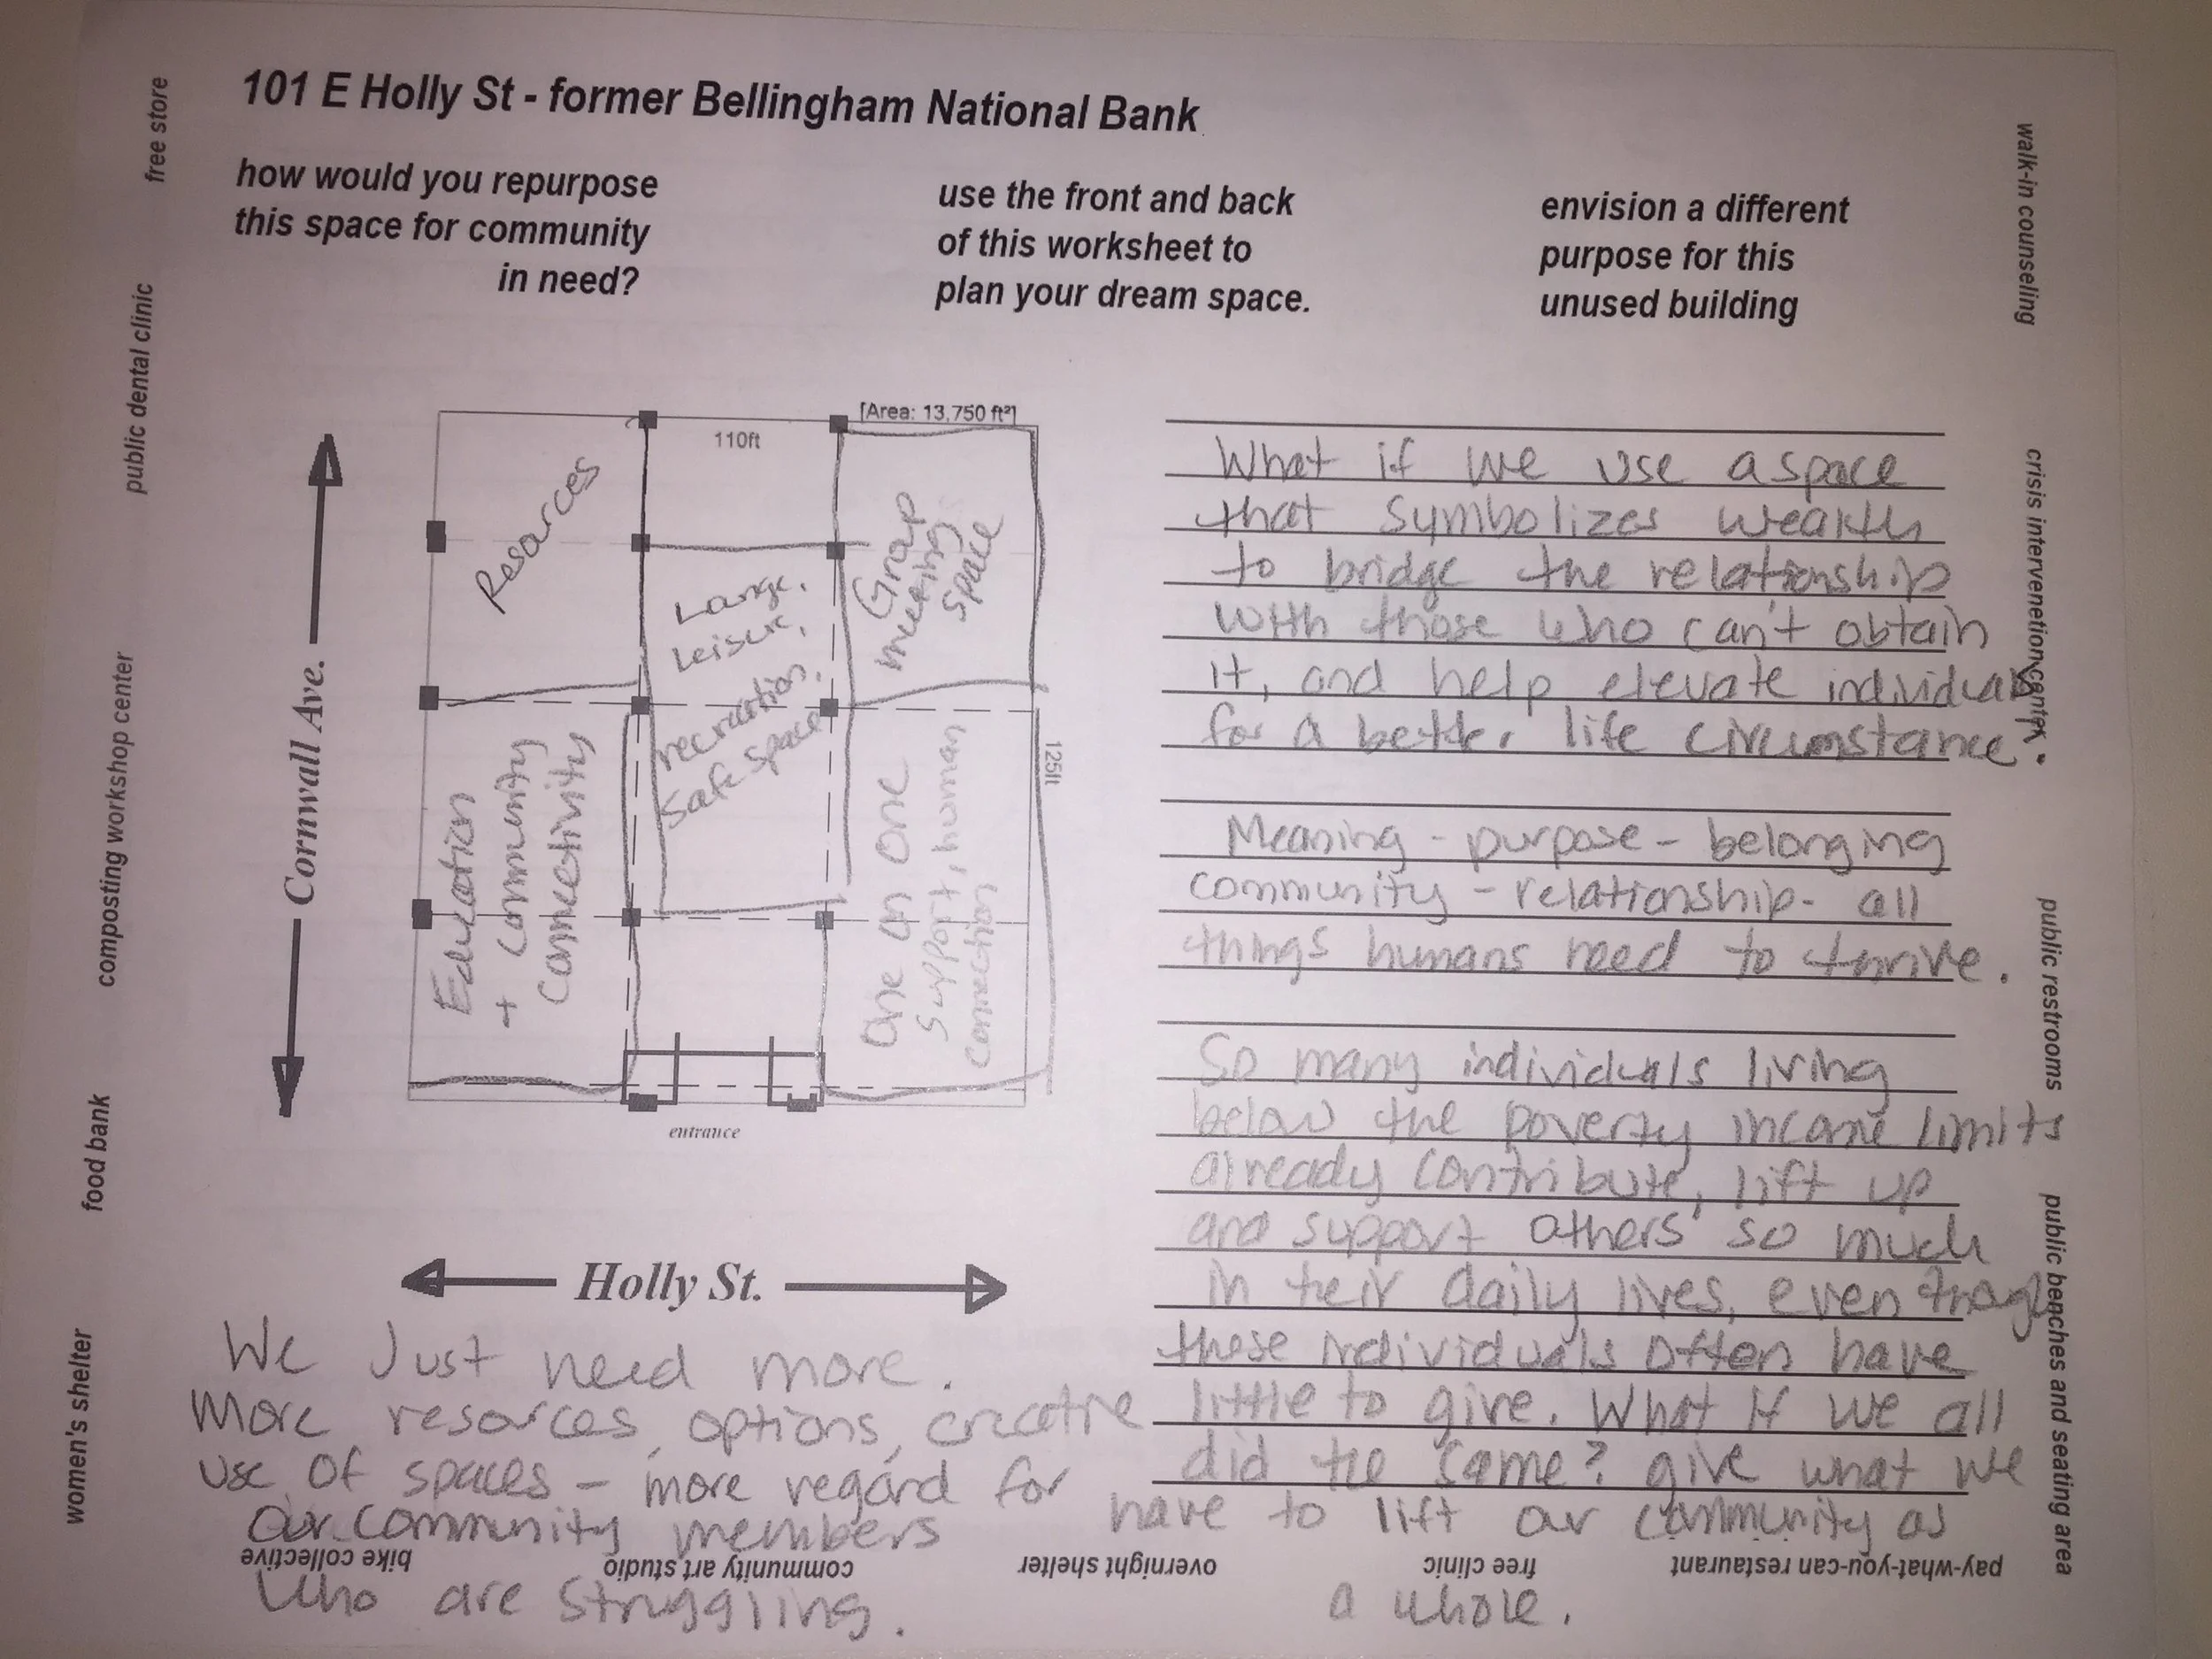 101 E Holly St - former Bellingham National Bank
how would you repurpose
this space for community
in need?
use the front and back
of this worksheet to
plan your dream space.
envision a different
purpose for this
unused building
free store
public dental clinic
composting workshop center
food bank
women's shelter
walk-in counseling
crisis intervenetion center
public restrooms
public benches and seating area
Cornwall Ave.
[Area: 13,750 ft²]
110ft
125ft
Resources
Lounge,
leisure,
recreation,
safe space
Group
meeting
space
Education
+ community
connectivity
One on one
support, human
connection
entrance
Holly St.
What if we use a space
that symbolizes wealth
to bridge the relationship
with those who can't obtain
it, and help elevate individuals
for a better life circumstance.
Meaning - purpose - belonging
community - relationship - all
things humans need to thrive.
So many individuals living
below the poverty income limits
already contribute, lift up
and support others so much
in their daily lives, even though
these individuals often have
little to give. What if we all
did the same? give what we
have to lift our community as
a whole.
We Just need more.
More resources, options, creative
use of spaces - more regard for
our community members
who are struggling.
bike collective
community art studio
overnight shelter
free clinic
pay-what-you-can restaurant